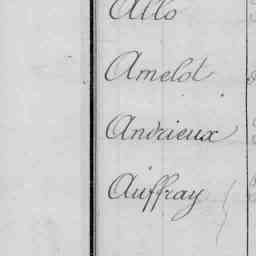 Allo
Amelot
Andrieux
Auffray